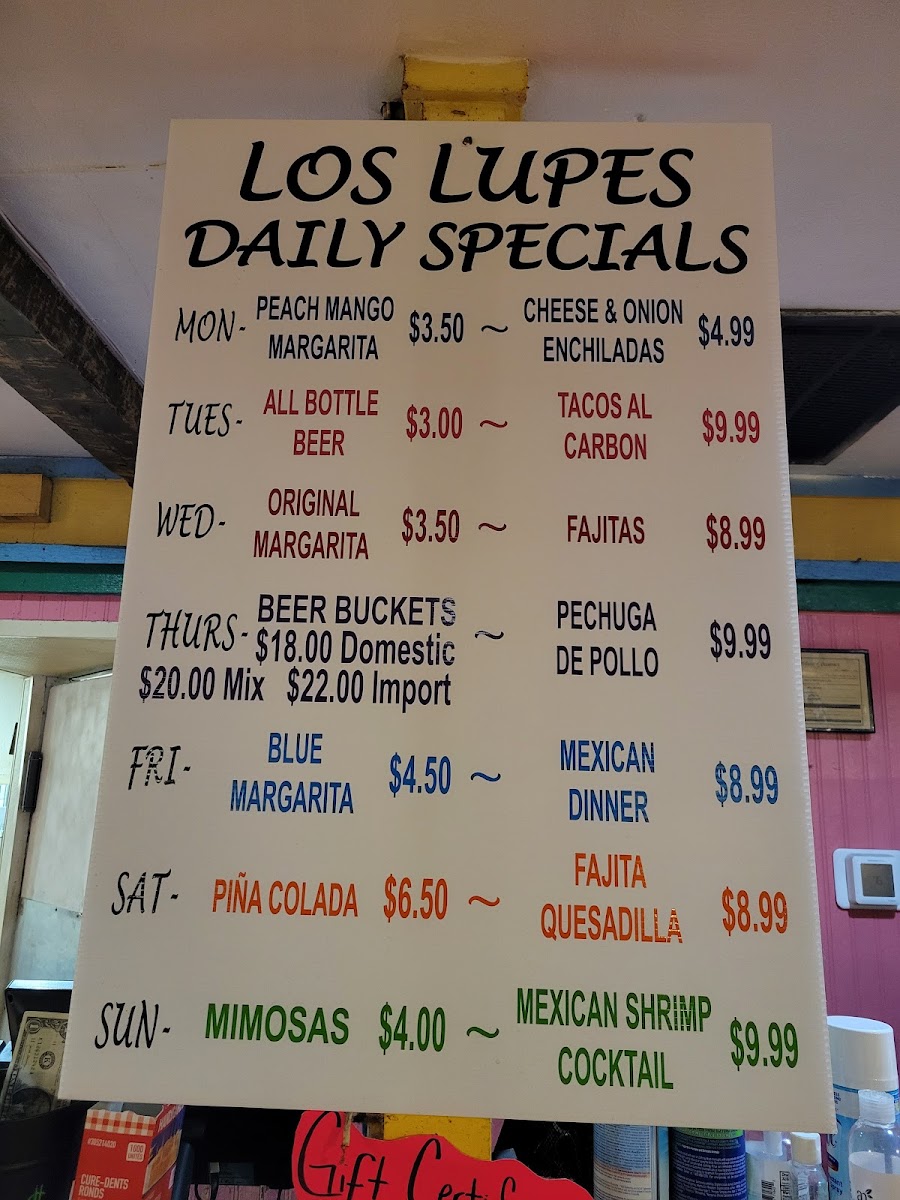 LOS LUPES
DAILY SPECIALS
MON- PEACH MANGO MARGARITA $3.50 ~ CHEESE & ONION ENCHILADAS $4.99
TUES- ALL BOTTLE BEER $3.00 ~ TACOS AL CARBON $9.99
WED- ORIGINAL MARGARITA $3.50 ~ FAJITAS $8.99
THURS- BEER BUCKETS
$18.00 Domestic
$20.00 Mix $22.00 Import ~ PECHUGA DE POLLO $9.99
FRI- BLUE MARGARITA $4.50 ~ MEXICAN DINNER $8.99
SAT- PIÑA COLADA $6.50 ~ FAJITA QUESADILLA $8.99
SUN- MIMOSAS $4.00 ~ MEXICAN SHRIMP COCKTAIL $9.99
1000
CURE-DENTS
RONDS
Gift Certif